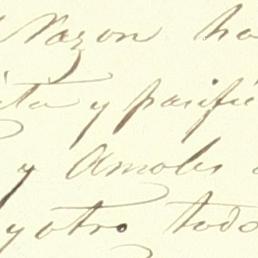 Razon ha
ita y pacifi
y Amoles
y otro todo